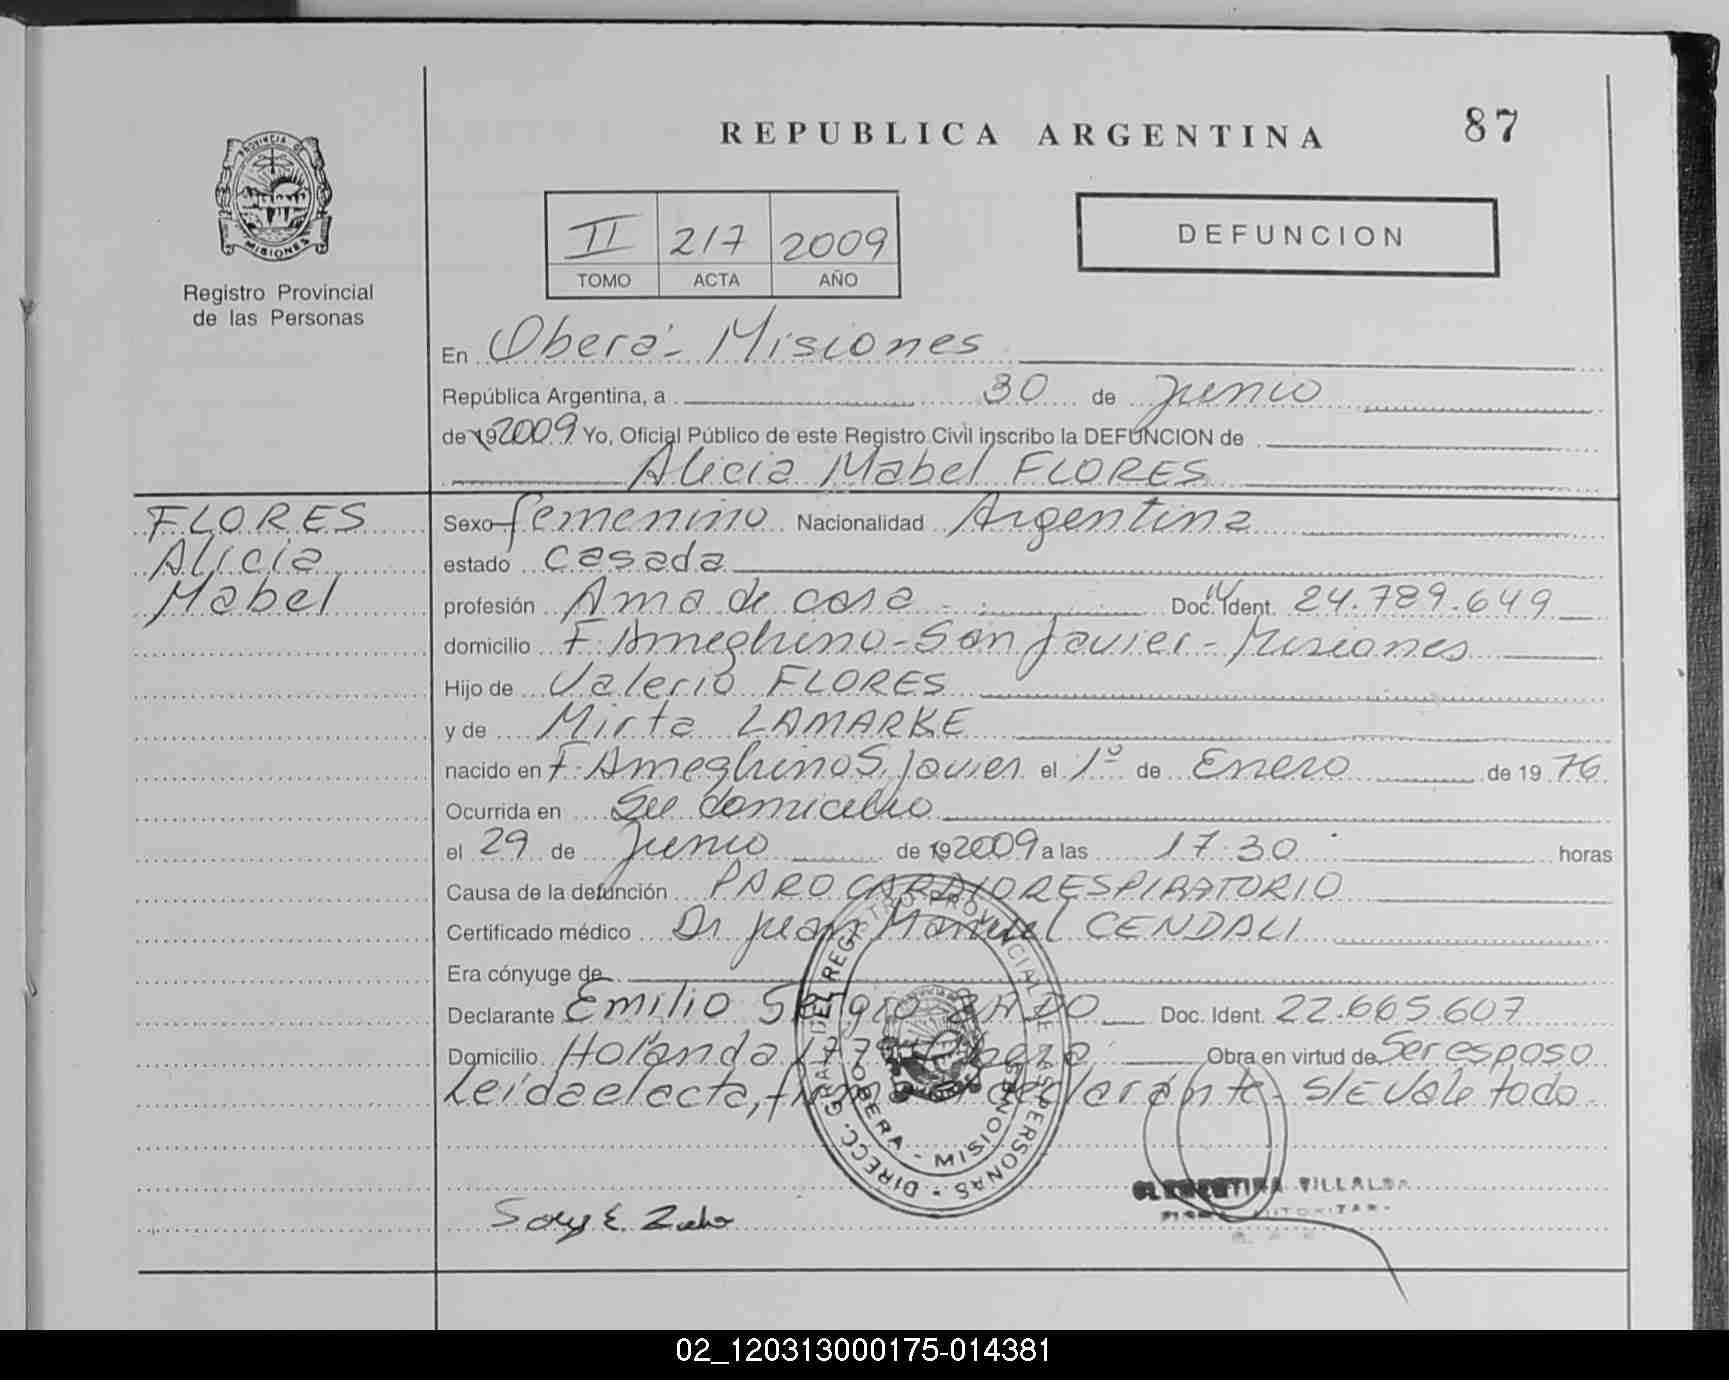 REPUBLICA ARGENTINA
87
PROVINCIA DE
MISIONES
Registro Provincial
de las Personas
II 217 2009
TOMO ACTA AÑO
DEFUNCION
En Oberá - Misiones
República Argentina, a 30 de Junio
de 192009 Yo, Oficial Público de este Registro Civil inscribo la DEFUNCION de
Alicia Mabel FLORES
FLORES
Alicia
Mabel
Sexo femenino Nacionalidad Argentina
estado casada
profesión Ama de casa Doc. Ident. 24.789.649
domicilio F. Ameghino - San Javier - Misiones
Hijo de Valerio FLORES
y de Mirta LAMARKE
nacido en F. Ameghino S. Javier el 1º de Enero de 19 76
Ocurrida en Su domicilio
el 29 de Junio de 192009 a las 17.30 horas
Causa de la defunción PARO CARDIORESPIRATORIO
Certificado médico Dr Juan Manuel CENDALI
Era cónyuge de
Declarante Emilio Sergio Doc. Ident. 22.665.607
Domicilio Holanda Oberá Obra en virtud de Ser esposo
Leída el acta, firma el declarante - S/E Vale todo -
DIRECC. GRAL. DEL REGISTRO PROVINCIAL DE LAS PERSONAS
OBERA - MISIONES
CLEMENTINA VILLALBA
FIRMA AUTORIZADA
02_120313000175-014381